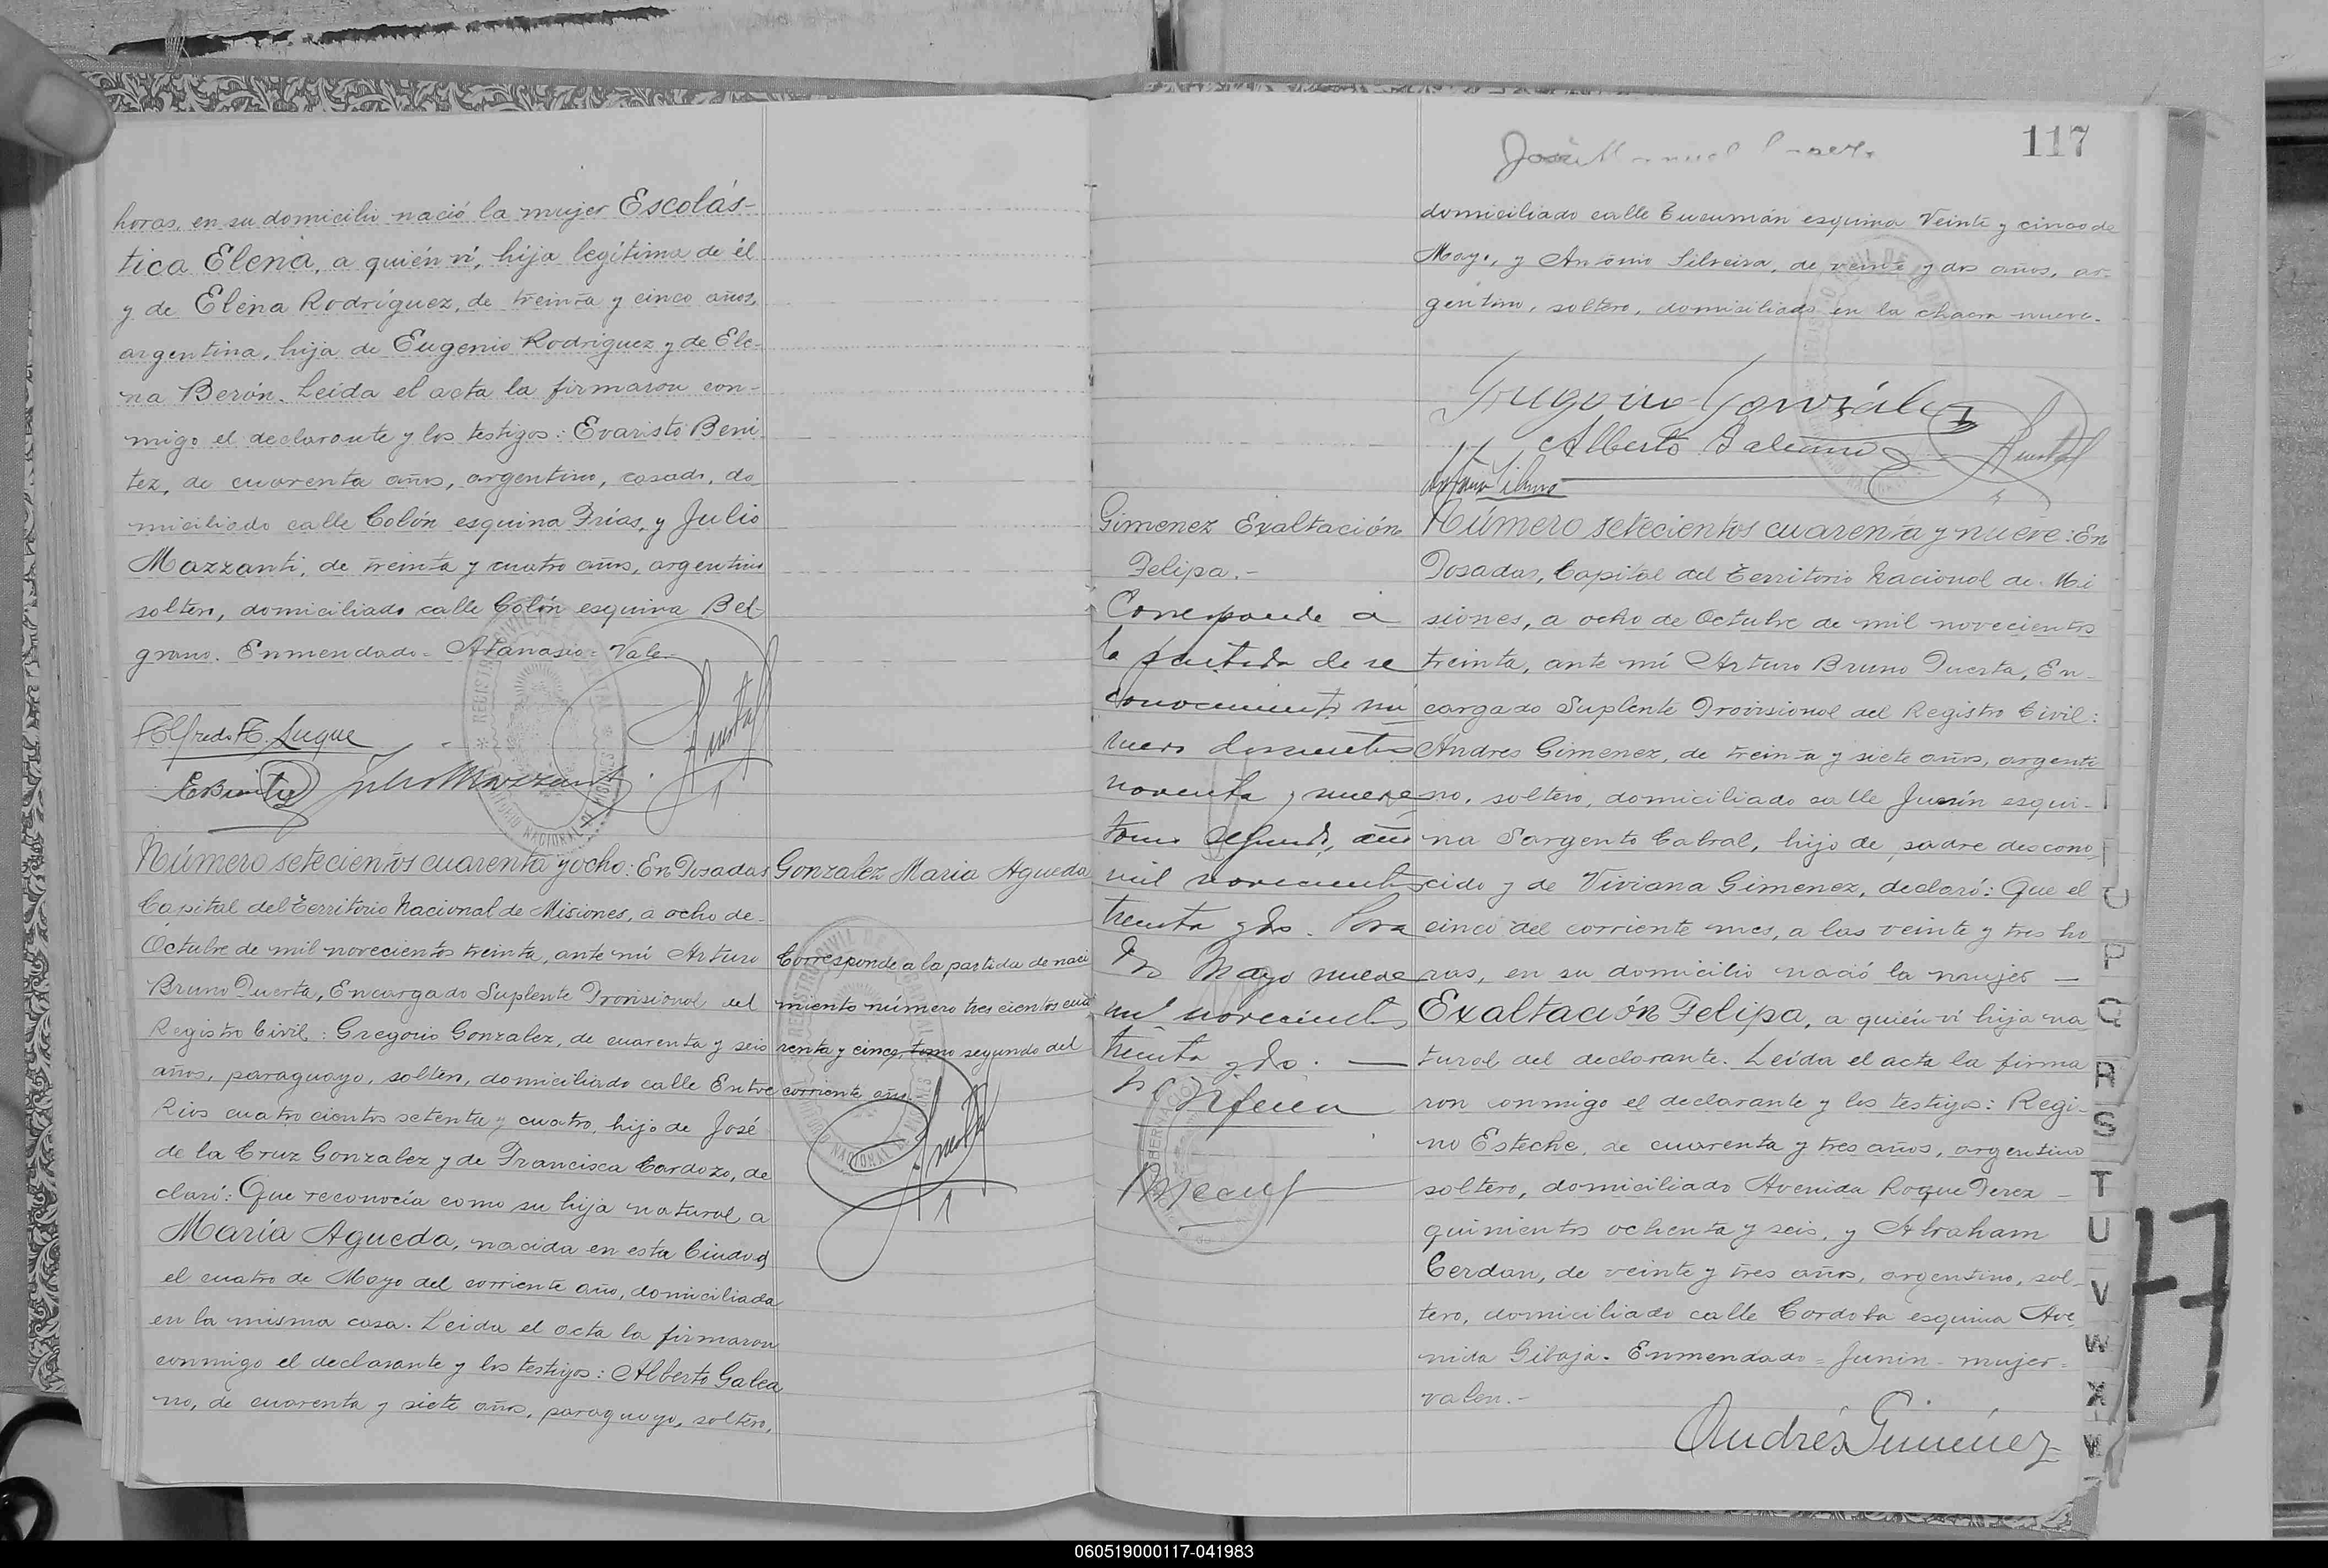 horas, en su domicilio nació la mujer Escolás-
tica Elena, a quién vi, hija legítima de él
y de Elena Rodríguez, de treinta y cinco años,
argentina, hija de Eugenio Rodriguez y de Ele-
na Berón. Leída el acta la firmaron con-
migo el declarante y los testigos: Evaristo Beni
tez, de cuarenta años, argentino, casado, do
miciliado calle Colón esquina Frías, y Julio
Mazzanti, de treinta y cuatro años, argentino
soltero, domiciliado calle Colón esquina Bel-
grano. Enmendado = Atanasio = Vale.-
Alfredo F. Luque
EBenitez Julio Mazzanti
Número setecientos cuarenta y ocho: En Posadas
Capital del Territorio Nacional de Misiones, a ocho de
Octubre de mil novecientos treinta, ante mi Arturo
Bruno Puerta, Encargado Suplente Provisional del
Registro Civil: Gregorio Gonzalez, de cuarenta y seis
años, paraguayo, soltero, domiciliado calle Entre
Rios cuatrocientos setenta y cuatro, hijo de José
de la Cruz Gonzalez y de Francisca Cardozo, de
claró: Que reconocía como su hija natural a
María Agueda, nacida en esta Ciudad
el cuatro de Mayo del corriente año, domiciliada
en la misma casa. Leida el acta la firmaron
conmigo el declarante y los testigos: Alberto Galea
no, de cuarenta y siete años, paraguayo, soltero,
Gonzalez Maria Agueda
Corresponde a la partida de naci
miento número trescientos cua
renta y cinco, tomo segundo del
corriente año.
117
José Manuel
domiciliado calle Tucumán esquina Veinte y cinco de
Mayo, y Antonio Silveira, de veinte y dos años, ar-
gentino, soltero, domiciliado en la chacra nueve.
Gregorio González
Alberto Galeano
Gimenez Exaltación
Felipa.-
Corresponde a
la partida de re
conocimiento nu
mero doscientos
noventa y nueve
tomo segundo, año
mil novecientos
treinta y dos. Posa
das Mayo nueve
mil novecientos
treinta y dos. —
Número setecientos cuarenta y nueve: En
Posadas, Capital del Territorio Nacional de Mi
siones, a ocho de Octubre de mil novecientos
treinta, ante mí Arturo Bruno Puerta, En-
cargado Suplente Provisional del Registro Civil:
Andres Gimenez, de treinta y siete años, argenti
no, soltero, domiciliado calle Junín esqui-
na Sargento Cabral, hijo de padre descono
cido y de Viviana Gimenez, declaró: Que el
cinco del corriente mes, a las veinte y tres ho
ras, en su domicilio nació la mujer —
Exaltación Felipa, a quién vi hija na
tural del declarante. Leída el acta la firma
ron conmigo el declarante y los testigos: Regi-
no Esteche, de cuarenta y tres años, argentino
soltero, domiciliado Avenida Roque Perez —
quinientos ochenta y seis, y Abraham
Cerdan, de veinte y tres años, argentino, sol-
tero, domiciliado calle Cordoba esquina Ave,
nida Gibaja. Enmendado = Junin - mujer =
valen.-
Andrés Gimenez
P
Q
R
S
T
U
V
W
X
060519000117-041983